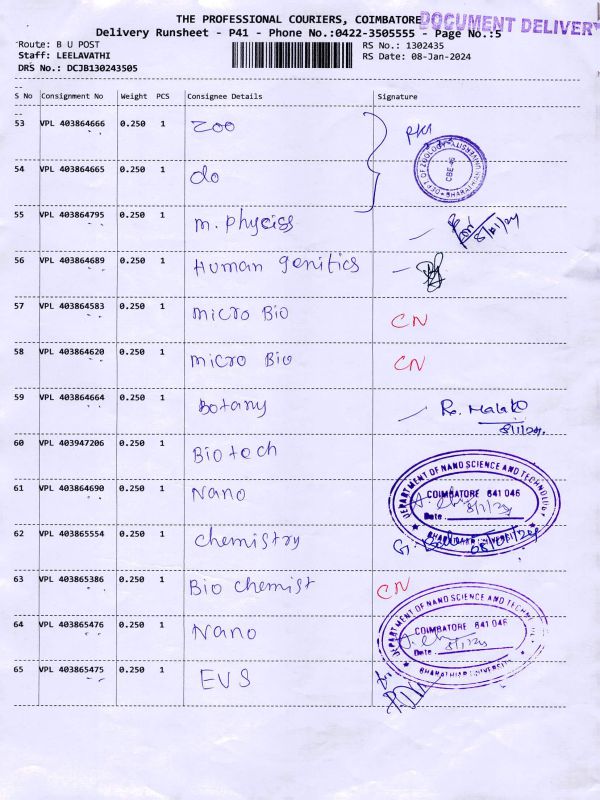 THE PROFESSIONAL COURIERS, COIMBATORE
DOCUMENT DELIVERY
Delivery Runsheet - P41 - Phone No.:0422-3505555 - Page No.:5
Route: B U POST
RS No.: 1302435
Staff: LEELAVATHI
RS Date: 08-Jan-2024
DRS No.: DCJB130243505
S No Consignment No Weight PCS Consignee Details Signature
53 VPL 403864666 0.250 1 Zoo
DEPT OF ZOOLOGY BHARATHIAR UNIVERSITY CBE-46
54 VPL 403864665 0.250 1 do
55 VPL 403864795 0.250 1 m. Phyciss 8/01/24
56 VPL 403864689 0.250 1 Human genitics
57 VPL 403864583 0.250 1 micro Bio CN
58 VPL 403864620 0.250 1 micro Bio CN
59 VPL 403864664 0.250 1 Botany
8/1/24.
60 VPL 403947206 0.250 1 Biotech
DEPARTMENT OF NANO SCIENCE AND TECHNOLOGY
61 VPL 403864690 0.250 1 Nano COIMBATORE 641 046
Date 8/1/24
BHARATHIAR UNIVERSITY
62 VPL 403865554 0.250 1 chemistry 08/01/24
63 VPL 403865386 0.250 1 Bio chemist CN
DEPARTMENT OF NANO SCIENCE AND TECHN
64 VPL 403865476 0.250 1 Nano COIMBATORE 641 046
Date 8/1/24
BHARATHIAR UNIVERSITY
65 VPL 403865475 0.250 1 EVS